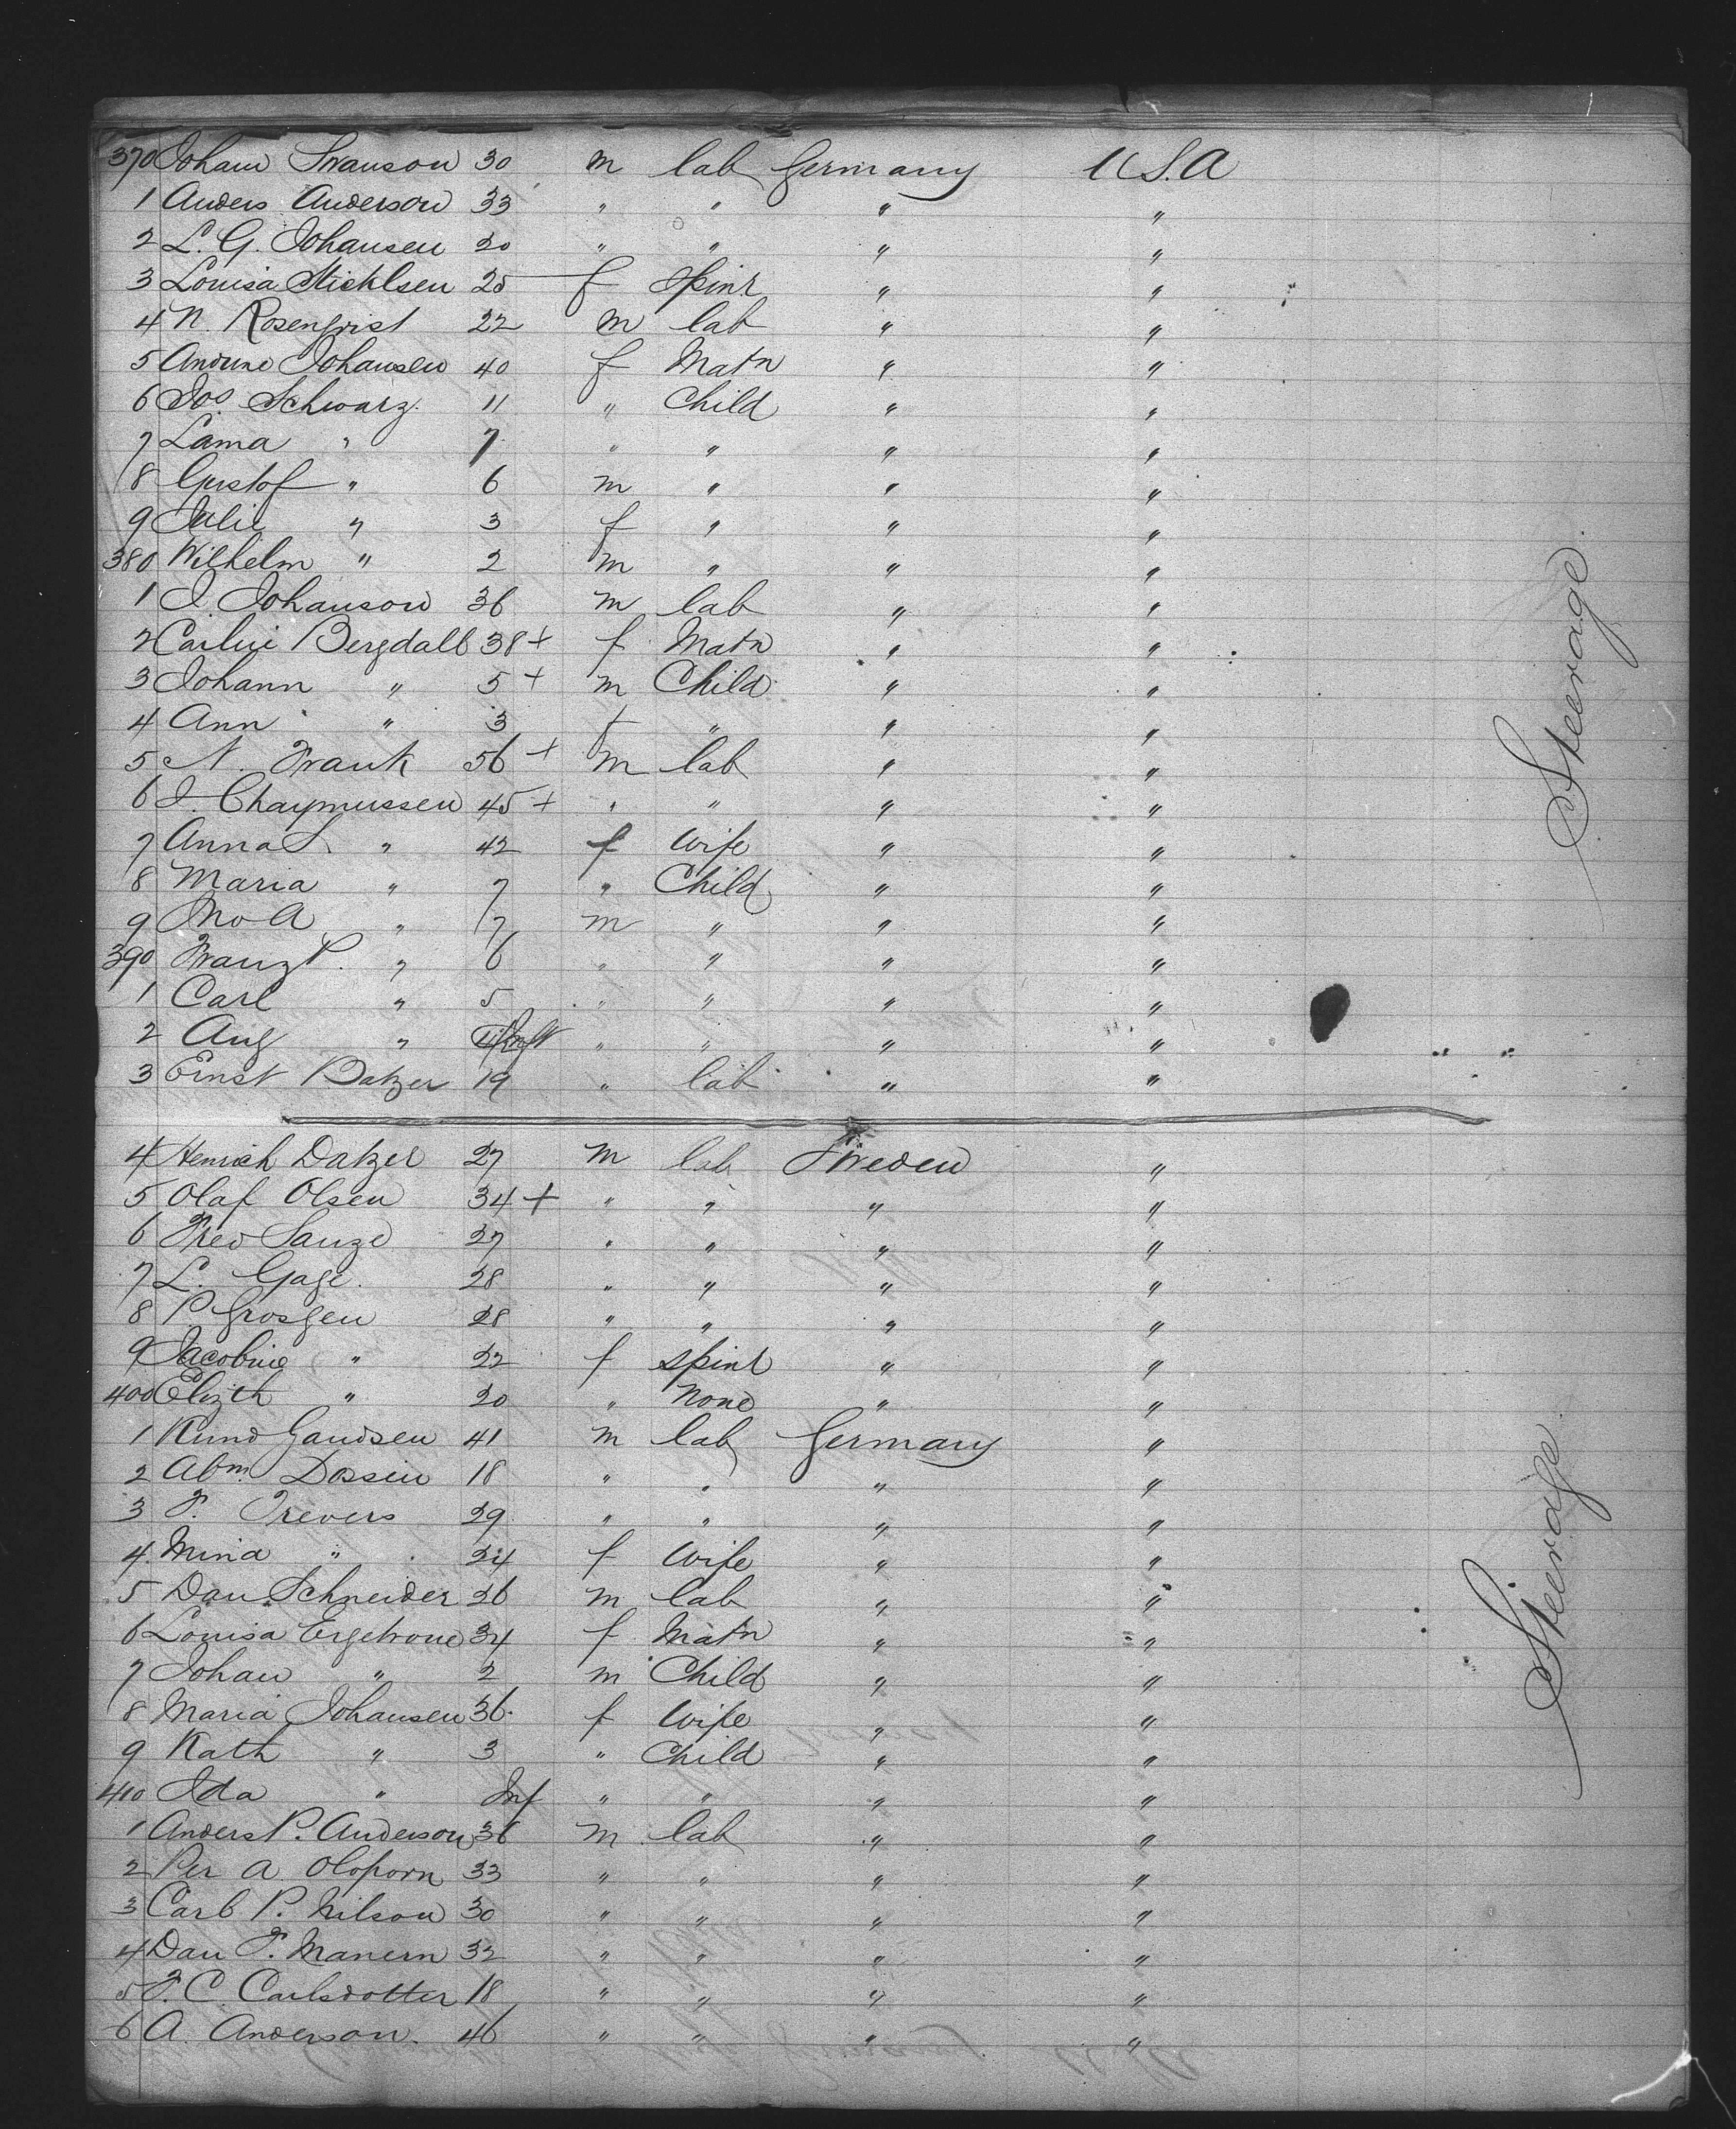 370 Johann Swanson 30 m lab Germany U.S.A
1 Anders Anderson 33 " " " "
2 L. G. Johansen 20 " " " "
3 Louisa 25 f spinr " "
4 N. Rosenqvist 22 m lab " "
5 Johansen 40 f Matn " "
6 Jos Schwarz 11 " Child " "
7 Lama " 7 " " " "
8 Gustof " 6 m " " "
9 Julie " 3 f " " "
380 Wilhelm " 2 m " " "
1 J. Johanson 36 m lab " "
2 Bergdall 38 + f Matn " "
3 Johann " 5 + m Child " "
4 Ann " 3 f " " "
5 N. Frank 56 + m lab " "
6 J. Chaymussen 45 + " " " "
7 Anna S " 42 f Wife " "
8 Maria " 7 " Child " "
9 Jno A " 7 m " " "
390 Franz P. " 6 " " " "
1 Carl " 5 " " " "
2 Aug " " " " "
3 Ernst Datzer 19 " lab " "
4 Henrich Datzer 27 m lab Sweden "
5 Olaf Olsen 34 + " " " "
6 Theo Sanze 27 " " " "
7 L. Gage 28 " " " "
8 P. Grosgen 28 " " " "
9 Jacobine " 22 f spinr " "
400 Elizth " 20 " None " "
1 Knud Gandsen 41 m lab Germany "
2 Abm Dossin 18 " " " "
3 F. Trevers 29 " " " "
4 Mina " 24 f Wife " "
5 Dan Schneider 26 m lab " "
6 Louisa 34 f Matn " "
7 Johan " 2 m Child " "
8 Maria Johansen 36 f Wife " "
9 Kath " 3 " Child " "
410 Ida " Inf " " " "
1 Anders P. Anderson 36 m lab " "
2 Per A. 33 " " " "
3 Carl P. Nilson 30 " " " "
4 Dan F. Manern 32 " " " "
5 F. C. Carlsdotter 18 " " " "
6 A. Anderson 46 " " " "
Steerage
Steerage